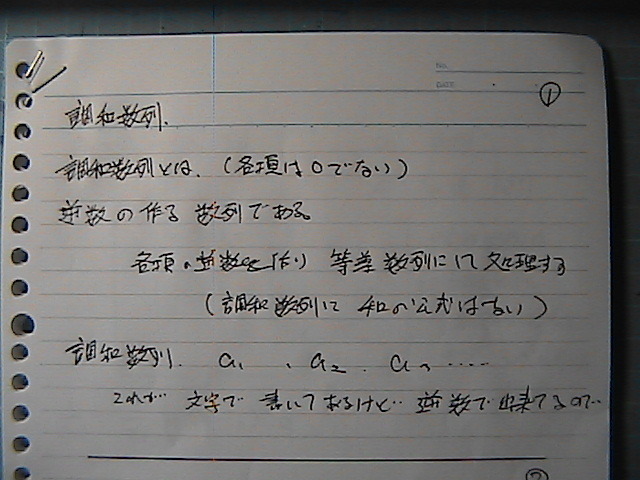 NO.
DATE
①
調和数列.
調和数列とは.(各項は0でない)
逆数の作る数列である。
各項の逆数を作り 等差数列にして処理する
(調和数列に 和の公式はない)
調和数列. a₁ , a₂ . a₃ ....
これが 文字で 書いてあるけど 逆数で出来てるので
②